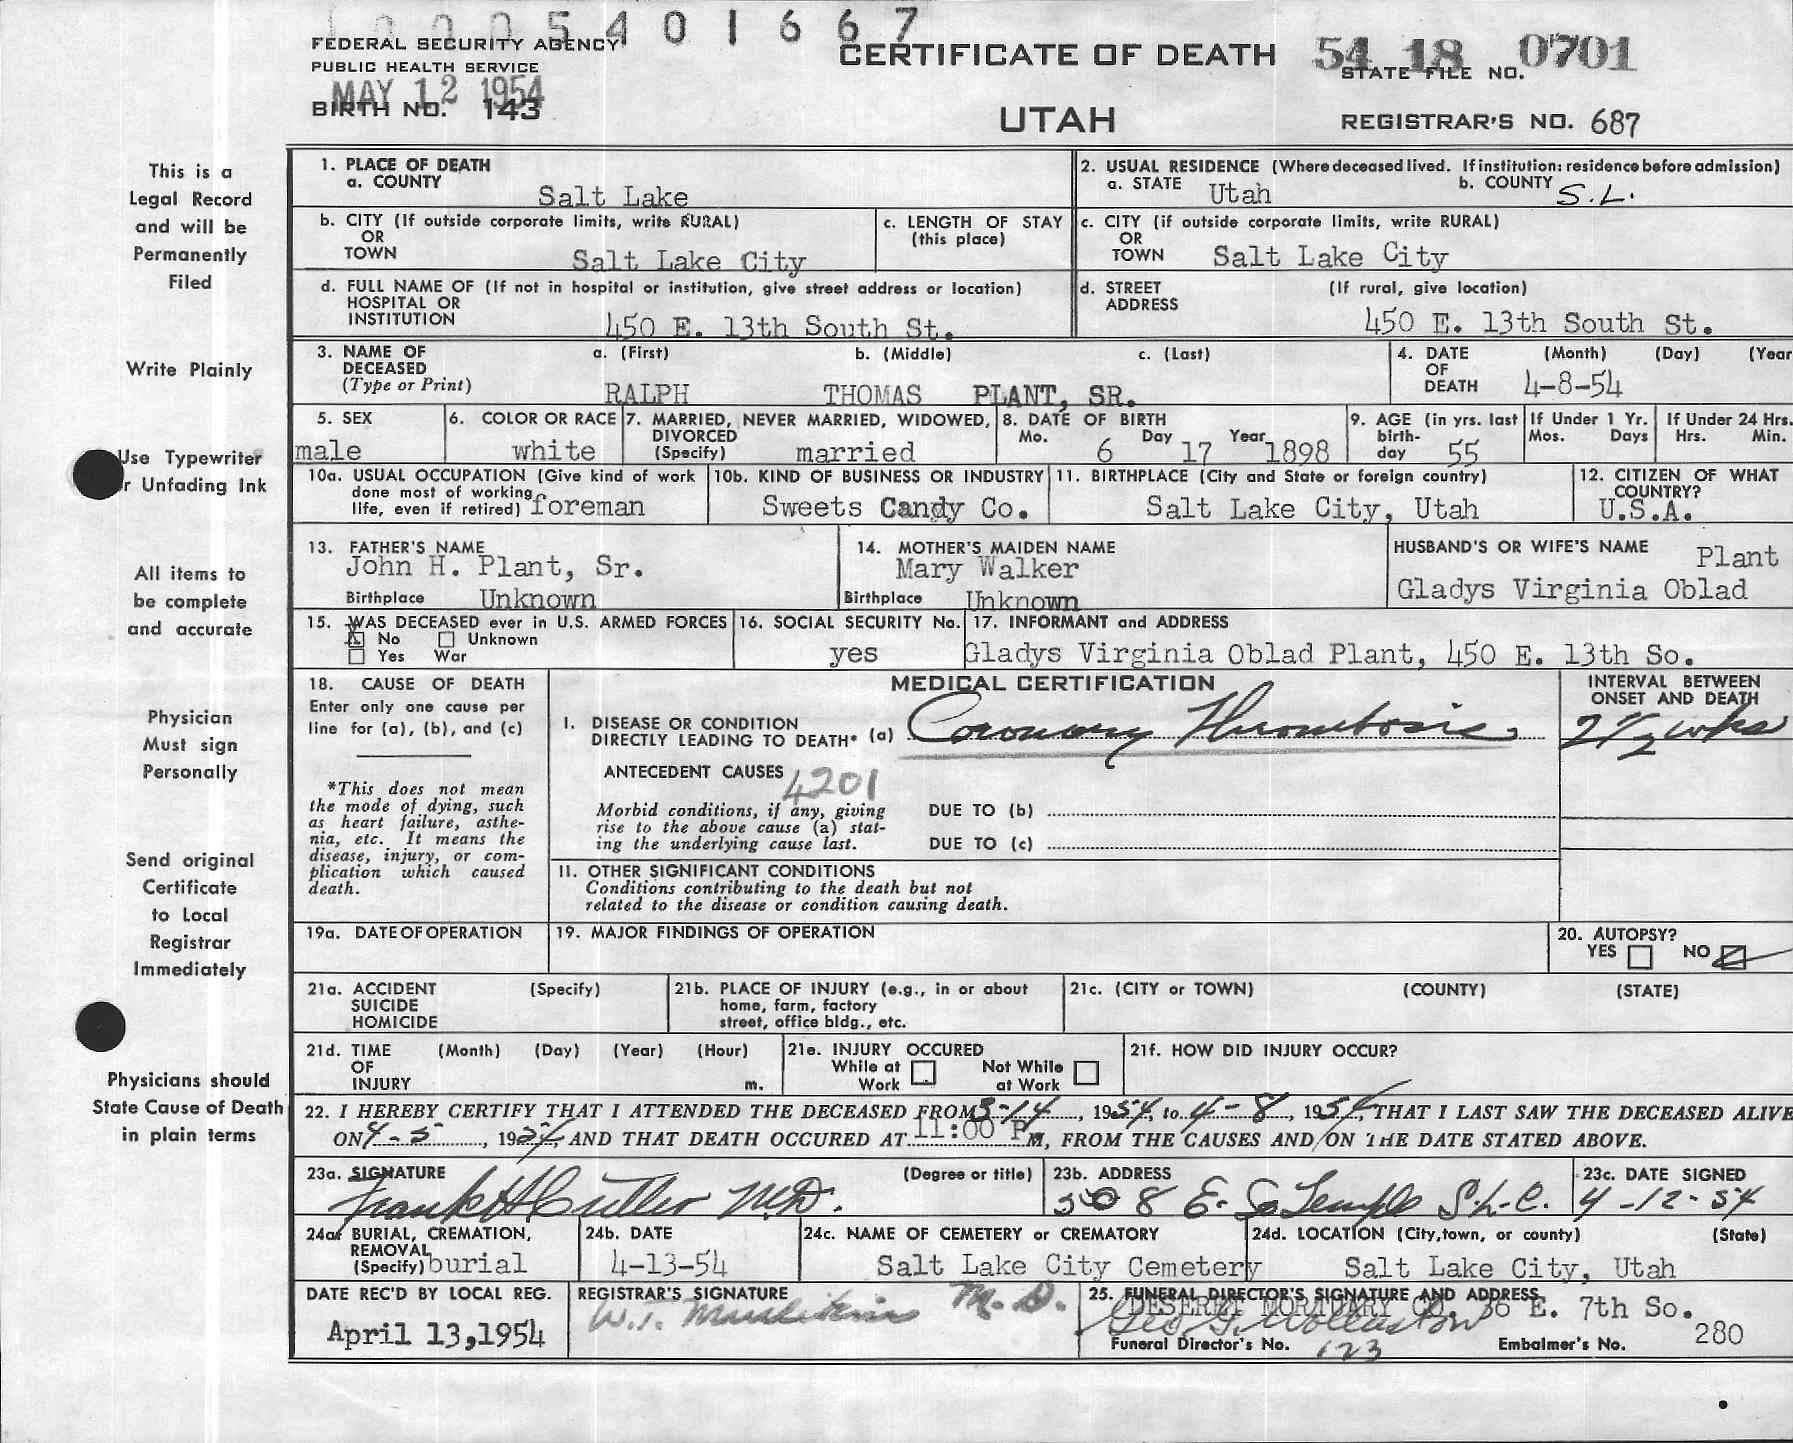 0005401667
FEDERAL SECURITY AGENCY
PUBLIC HEALTH SERVICE
MAY 12 1954
BIRTH NO. 143
CERTIFICATE OF DEATH
UTAH
54 18 0701
STATE FILE NO.
REGISTRAR'S NO. 687
This is a
Legal Record
and will be
Permanently
Filed
Write Plainly
Use Typewriter
or Unfading Ink
All items to
be complete
and accurate
Physician
Must sign
Personally
Send original
Certificate
to Local
Registrar
Immediately
Physicians should
State Cause of Death
in plain terms
1. PLACE OF DEATH
a. COUNTY
Salt Lake
2. USUAL RESIDENCE (Where deceased lived. If institution: residence before admission)
a. STATE Utah b. COUNTY S.L.
b. CITY (If outside corporate limits, write RURAL)
OR
TOWN Salt Lake City
c. LENGTH OF STAY
(this place)
c. CITY (if outside corporate limits, write RURAL)
OR
TOWN Salt Lake City
d. FULL NAME OF (If not in hospital or institution, give street address or location)
HOSPITAL OR
INSTITUTION 450 E. 13th South St.
d. STREET (If rural, give location)
ADDRESS
450 E. 13th South St.
3. NAME OF a. (First) b. (Middle) c. (Last)
DECEASED
(Type or Print) RALPH THOMAS PLANT, SR.
4. DATE (Month) (Day) (Year
OF
DEATH 4-8-54
5. SEX
male
6. COLOR OR RACE
white
7. MARRIED, NEVER MARRIED, WIDOWED,
DIVORCED
(Specify) married
8. DATE OF BIRTH
Mo. 6 Day 17 Year 1898
9. AGE (in yrs. last
birth-
day 55
If Under 1 Yr.
Mos. Days
If Under 24 Hrs.
Hrs. Min.
10a. USUAL OCCUPATION (Give kind of work
done most of working
life, even if retired) foreman
10b. KIND OF BUSINESS OR INDUSTRY
Sweets Candy Co.
11. BIRTHPLACE (City and State or foreign country)
Salt Lake City, Utah
12. CITIZEN OF WHAT
COUNTRY?
U.S.A.
13. FATHER'S NAME
John H. Plant, Sr.
Birthplace Unknown
14. MOTHER'S MAIDEN NAME
Mary Walker
Birthplace Unknown
HUSBAND'S OR WIFE'S NAME Plant
Gladys Virginia Oblad
15. WAS DECEASED ever in U.S. ARMED FORCES
X No Unknown
Yes War
16. SOCIAL SECURITY No.
yes
17. INFORMANT and ADDRESS
Gladys Virginia Oblad Plant, 450 E. 13th So.
18. CAUSE OF DEATH
Enter only one cause per
line for (a), (b), and (c)
*This does not mean
the mode of dying, such
as heart failure, asthe-
nia, etc. It means the
disease, injury, or com-
plication which caused
death.
MEDICAL CERTIFICATION
I. DISEASE OR CONDITION
DIRECTLY LEADING TO DEATH* (a) Coronary Thrombosis
INTERVAL BETWEEN
ONSET AND DEATH
2 1/2 wks
ANTECEDENT CAUSES
4201
Morbid conditions, if any, giving
rise to the above cause (a) stat-
ing the underlying cause last.
DUE TO (b)
DUE TO (c)
11. OTHER SIGNIFICANT CONDITIONS
Conditions contributing to the death but not
related to the disease or condition causing death.
19a. DATE OF OPERATION
19. MAJOR FINDINGS OF OPERATION
20. AUTOPSY?
YES NO
21a. ACCIDENT (Specify)
SUICIDE
HOMICIDE
21b. PLACE OF INJURY (e.g., in or about
home, farm, factory
street, office bldg., etc.
21c. (CITY or TOWN) (COUNTY) (STATE)
21d. TIME (Month) (Day) (Year) (Hour)
OF
INJURY m.
21e. INJURY OCCURED
While at Not While
Work at Work
21f. HOW DID INJURY OCCUR?
22. I HEREBY CERTIFY THAT I ATTENDED THE DECEASED FROM 3-14, 1954, to 4-8, 1954, THAT I LAST SAW THE DECEASED ALIVE
ON 4-5, 1954, AND THAT DEATH OCCURED AT 11:00 PM, FROM THE CAUSES AND ON THE DATE STATED ABOVE.
23a. SIGNATURE (Degree or title)
Frank H Cutler M.D.
23b. ADDRESS
508 E. So Temple S.L.C.
23c. DATE SIGNED
4-12-54
24a. BURIAL, CREMATION,
REMOVAL
(Specify) burial
24b. DATE
4-13-54
24c. NAME OF CEMETERY or CREMATORY
Salt Lake City Cemetery
24d. LOCATION (City, town, or county) (State)
Salt Lake City, Utah
DATE REC'D BY LOCAL REG.
April 13, 1954
REGISTRAR'S SIGNATURE
W.T. M. D.
25. FUNERAL DIRECTOR'S SIGNATURE AND ADDRESS
DESERET MORTUARY CO. 36 E. 7th So.
Funeral Director's No. 123 Embalmer's No. 280